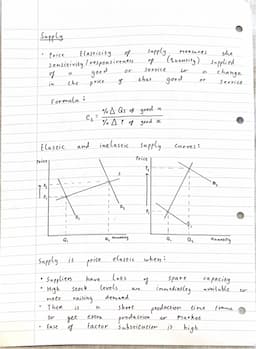 Supply
• Price Elasticity of supply measures the
sensitivity / responsiveness of (quantity) supplied
of a good or service to a change
in the price of that good or service
Formula :
% Δ Qs of good x
% Δ P of good x
Elastic and inelastic supply curves:
Price Price
S
Q₁ Q₂ Quantity Q₁ Q₂ Quantity
Supply is price elastic when:
• Suppliers have lots of spare capacity
• High stock levels are immediately available to
meet rising demand
• There is a short production time frame
to get extra production to market
• Ease of factor substitution is high